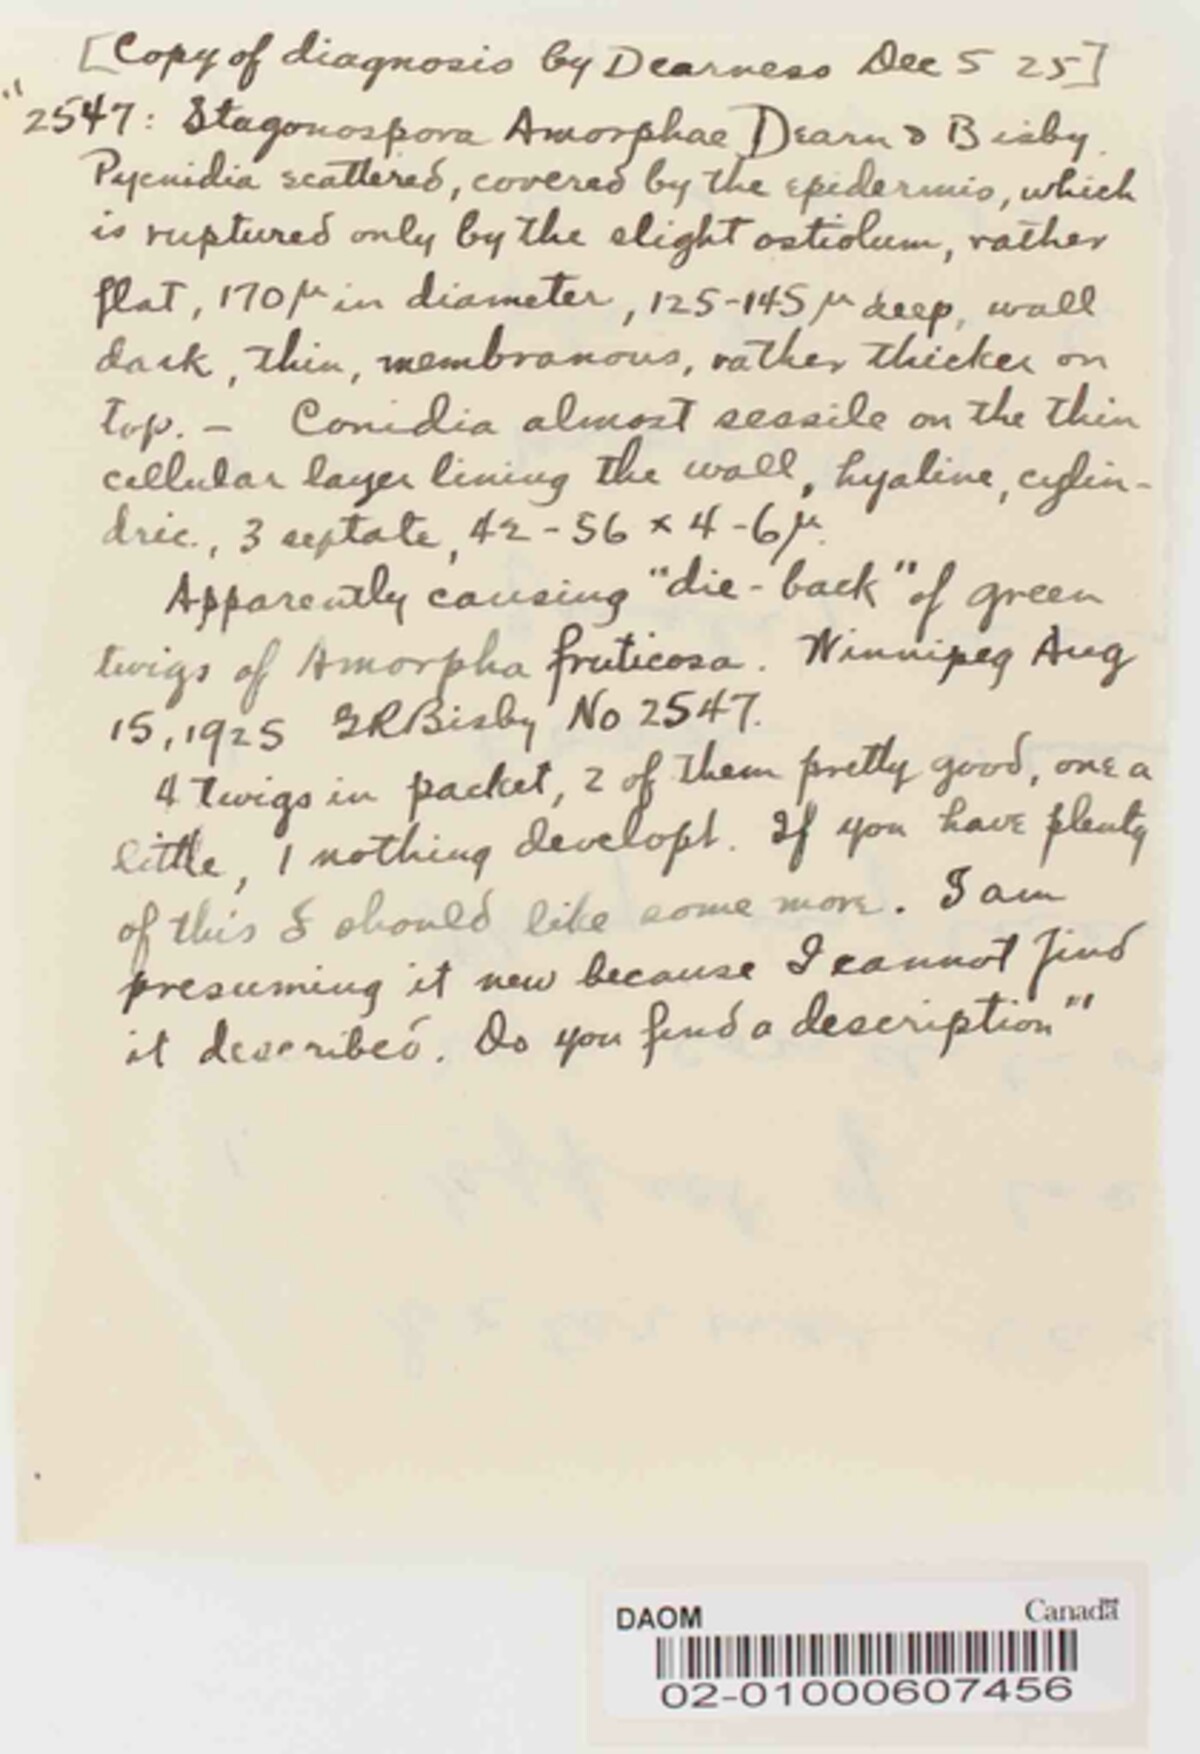 [Copy of diagnosis by Dearness Dec 5 25]
"2547: Stagonospora Amorphae Dearn & Bisby.
Pycnidia scattered, covered by the epidermis, which
is ruptured only by the slight ostiolum, rather
flat, 170 μ in diameter, 125-145 μ deep, wall
dark, thin, membranous, rather thicker on
top. - Conidia almost sessile on the thin
cellular layer lining the wall, hyaline, cylin-
dric., 3 septate, 42-56 x 4-6 μ.
Apparently causing "die-back" of green
twigs of Amorpha fruticosa. Winnipeg Aug
15, 1925 GRBisby No 2547.
4 twigs in packet, 2 of them pretty good, one a
little, 1 nothing developt. If you have plenty
of this I should like some more. I am
presuming it new because I cannot find
it described. Do you find a description"
DAOM Canada
02-01000607456